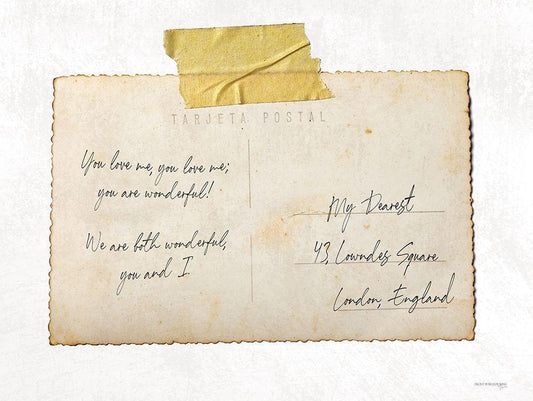 TARJETA POSTAL
You love me, you love me;
you are wonderful!
We are both wonderful,
you and I
My Dearest
43, Lowndes Square
London, England